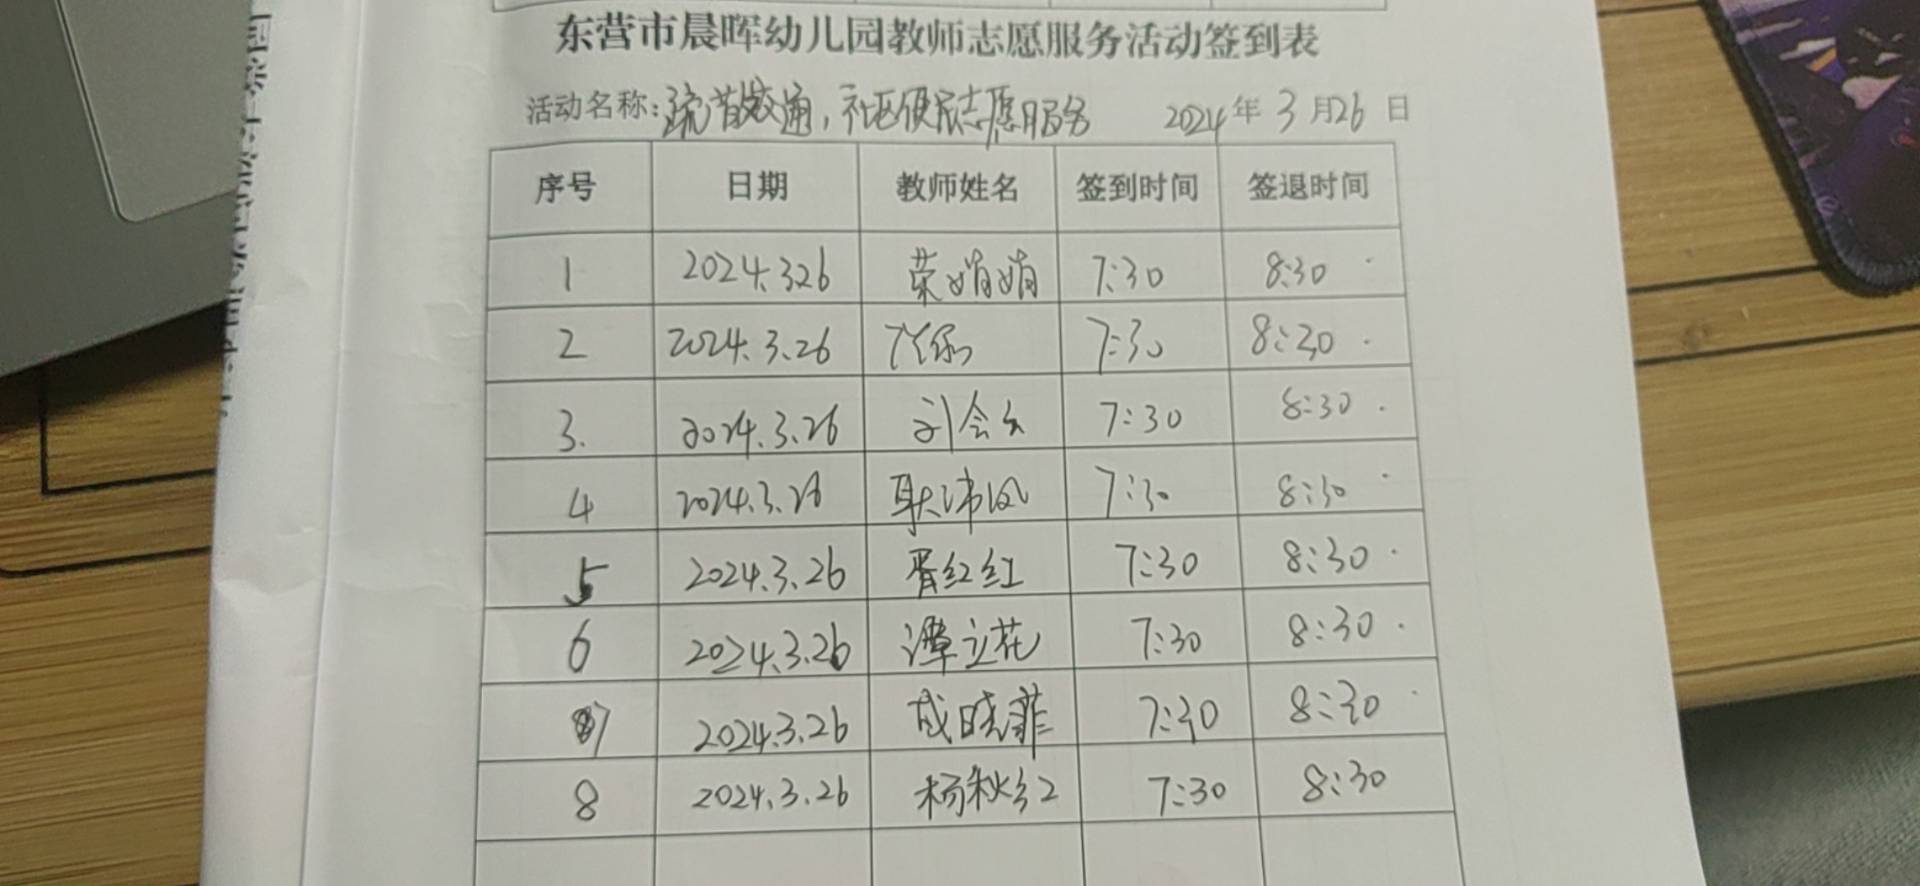 东营市晨晖幼儿园教师志愿服务活动签到表
活动名称：疏散交通，社区便民志愿服务 2024年3月26日
序号 日期 教师姓名 签到时间 签退时间
1 2024.3.26 荣娟娟 7:30 8:30
2 2024.3.26 7:30 8:30
3. 2024.3.26 刘会云 7:30 8:30
4 2024.3.26 7:30 8:30
5 2024.3.26 胥红红 7:30 8:30
6 2024.3.26 谭立花 7:30 8:30
7 2024.3.26 成晓菲 7:30 8:30
8 2024.3.26 杨秋红 7:30 8:30